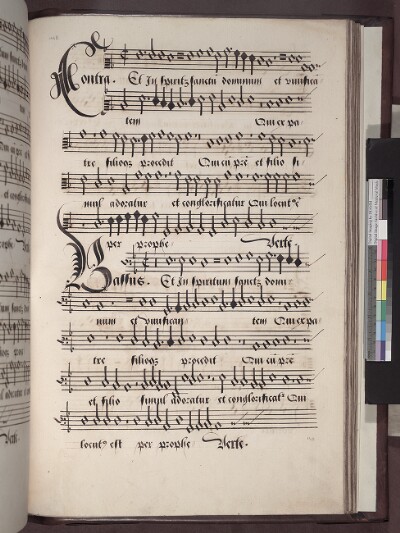 Contra. Et In spiritū sanctū dominum et vivifica
tem Qui ex pa
tre filioqz procedit Qui cū prē et filio si
mul adoratur et conglorificatur Qui locutꝰ ē
per prophe Verte
Bassus. Et In spiritum sanctū domi
num et vivifican tem Qui ex pa
tre filioqz procedit Qui cū prē
et filio simul adoratur et conglorificatᵗ Qui
locutꝰ est per prophe Verte.